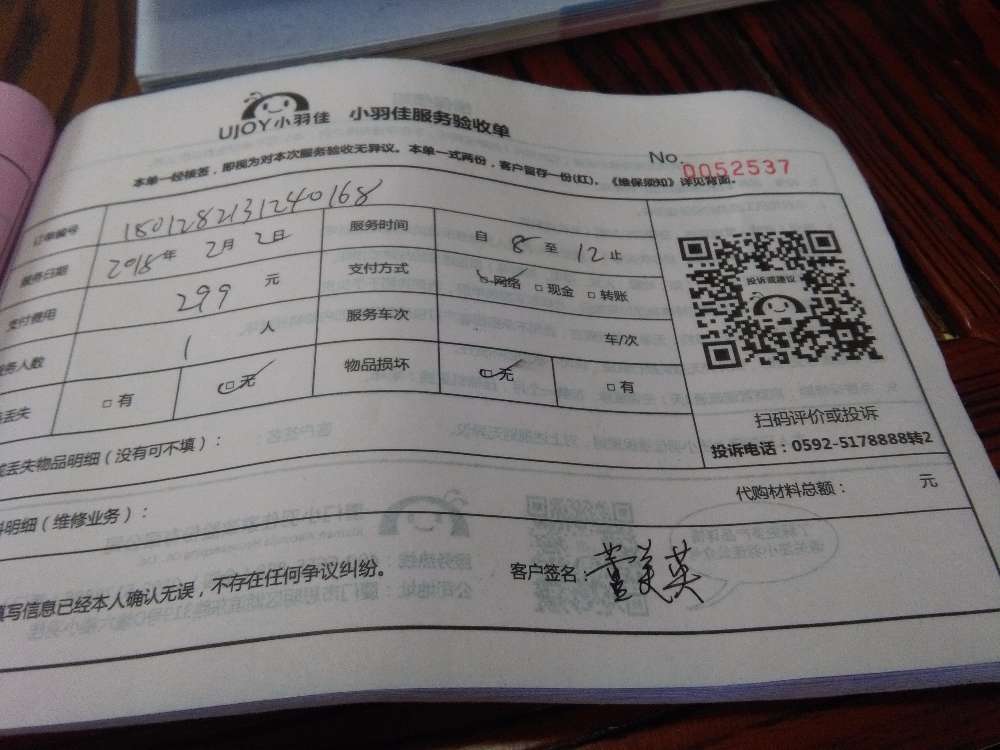 UJOY小羽佳 小羽佳服务验收单
No. 0052537
本单一经核签，即视为对本次服务验收无异议。本单一式两份，客户留存一份(红)。《维保须知》详见背面。
订单编号 1801282131240168
服务日期 2018年 2月 2日 服务时间 自 8 至 12 止
支付费用 299 元 支付方式 网络 现金 转账
服务人数 1 人 服务车次 车/次
丢失 有 无 物品损坏 无 有
投诉或建议
扫码评价或投诉
投诉电话：0592-5178888转2
丢失物品明细（没有可不填）：
明细（维修业务）： 代购材料总额： 元
填写信息已经本人确认无误，不存在任何争议纠纷。 客户签名：董美英